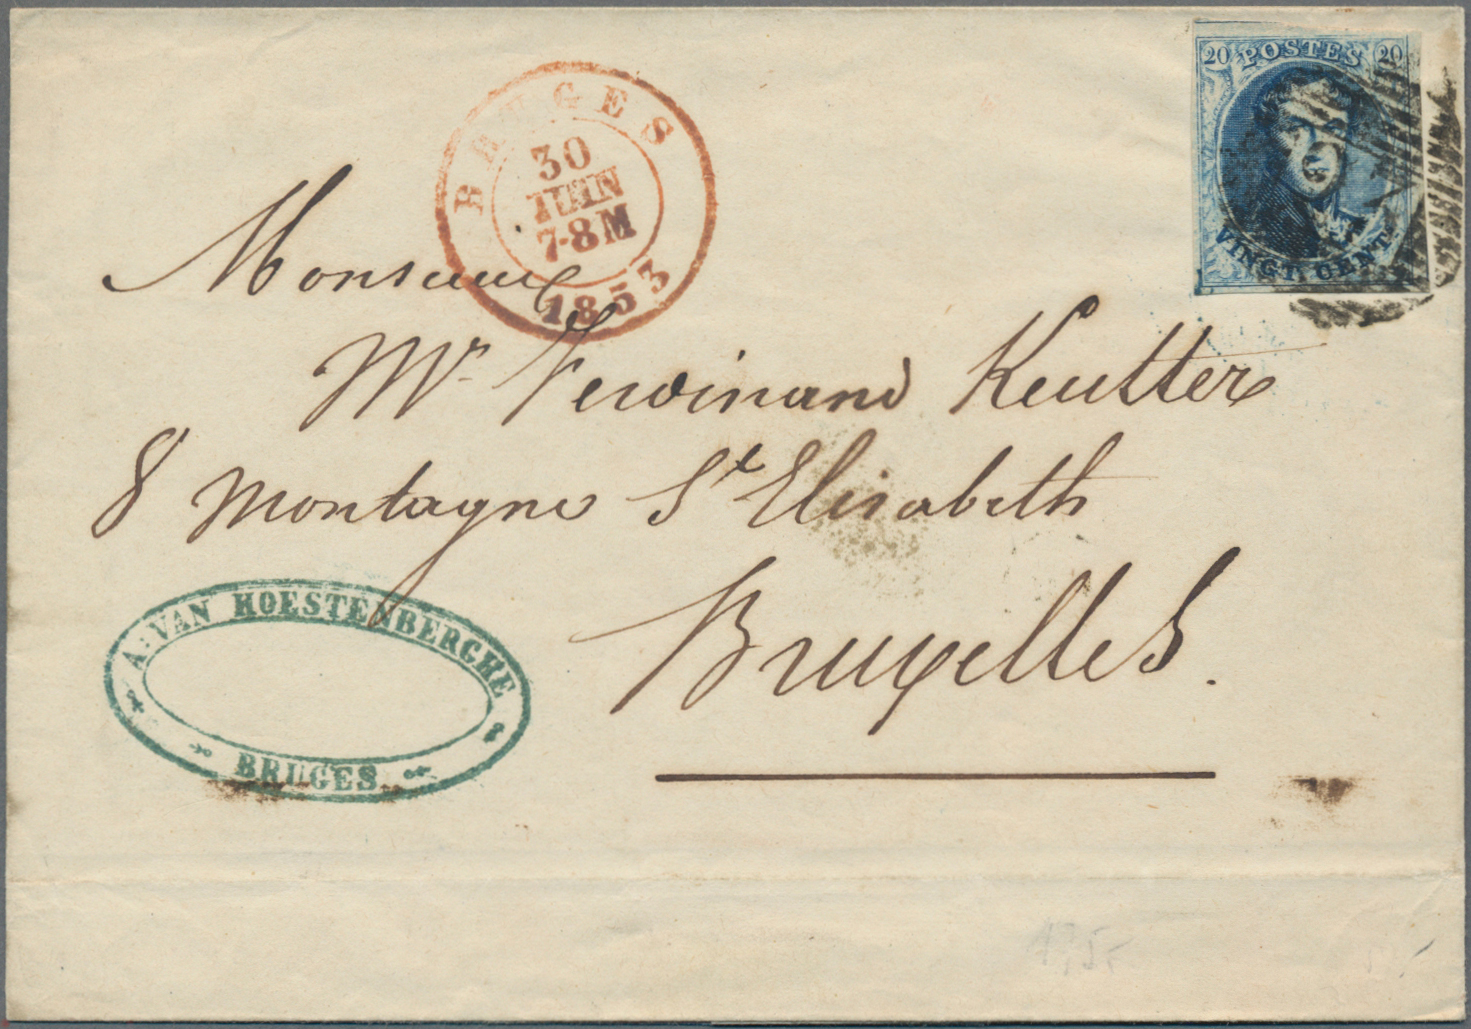 BRUGES
30
JUIN
7-8M
1853
20 POSTES 20
VINGT CENT
Monsieur
Mr Ferdinand Keutter
8 Montagne St Elisabeth
Bruxelles.
A. VAN HOESTENBERGHE
BRUGES